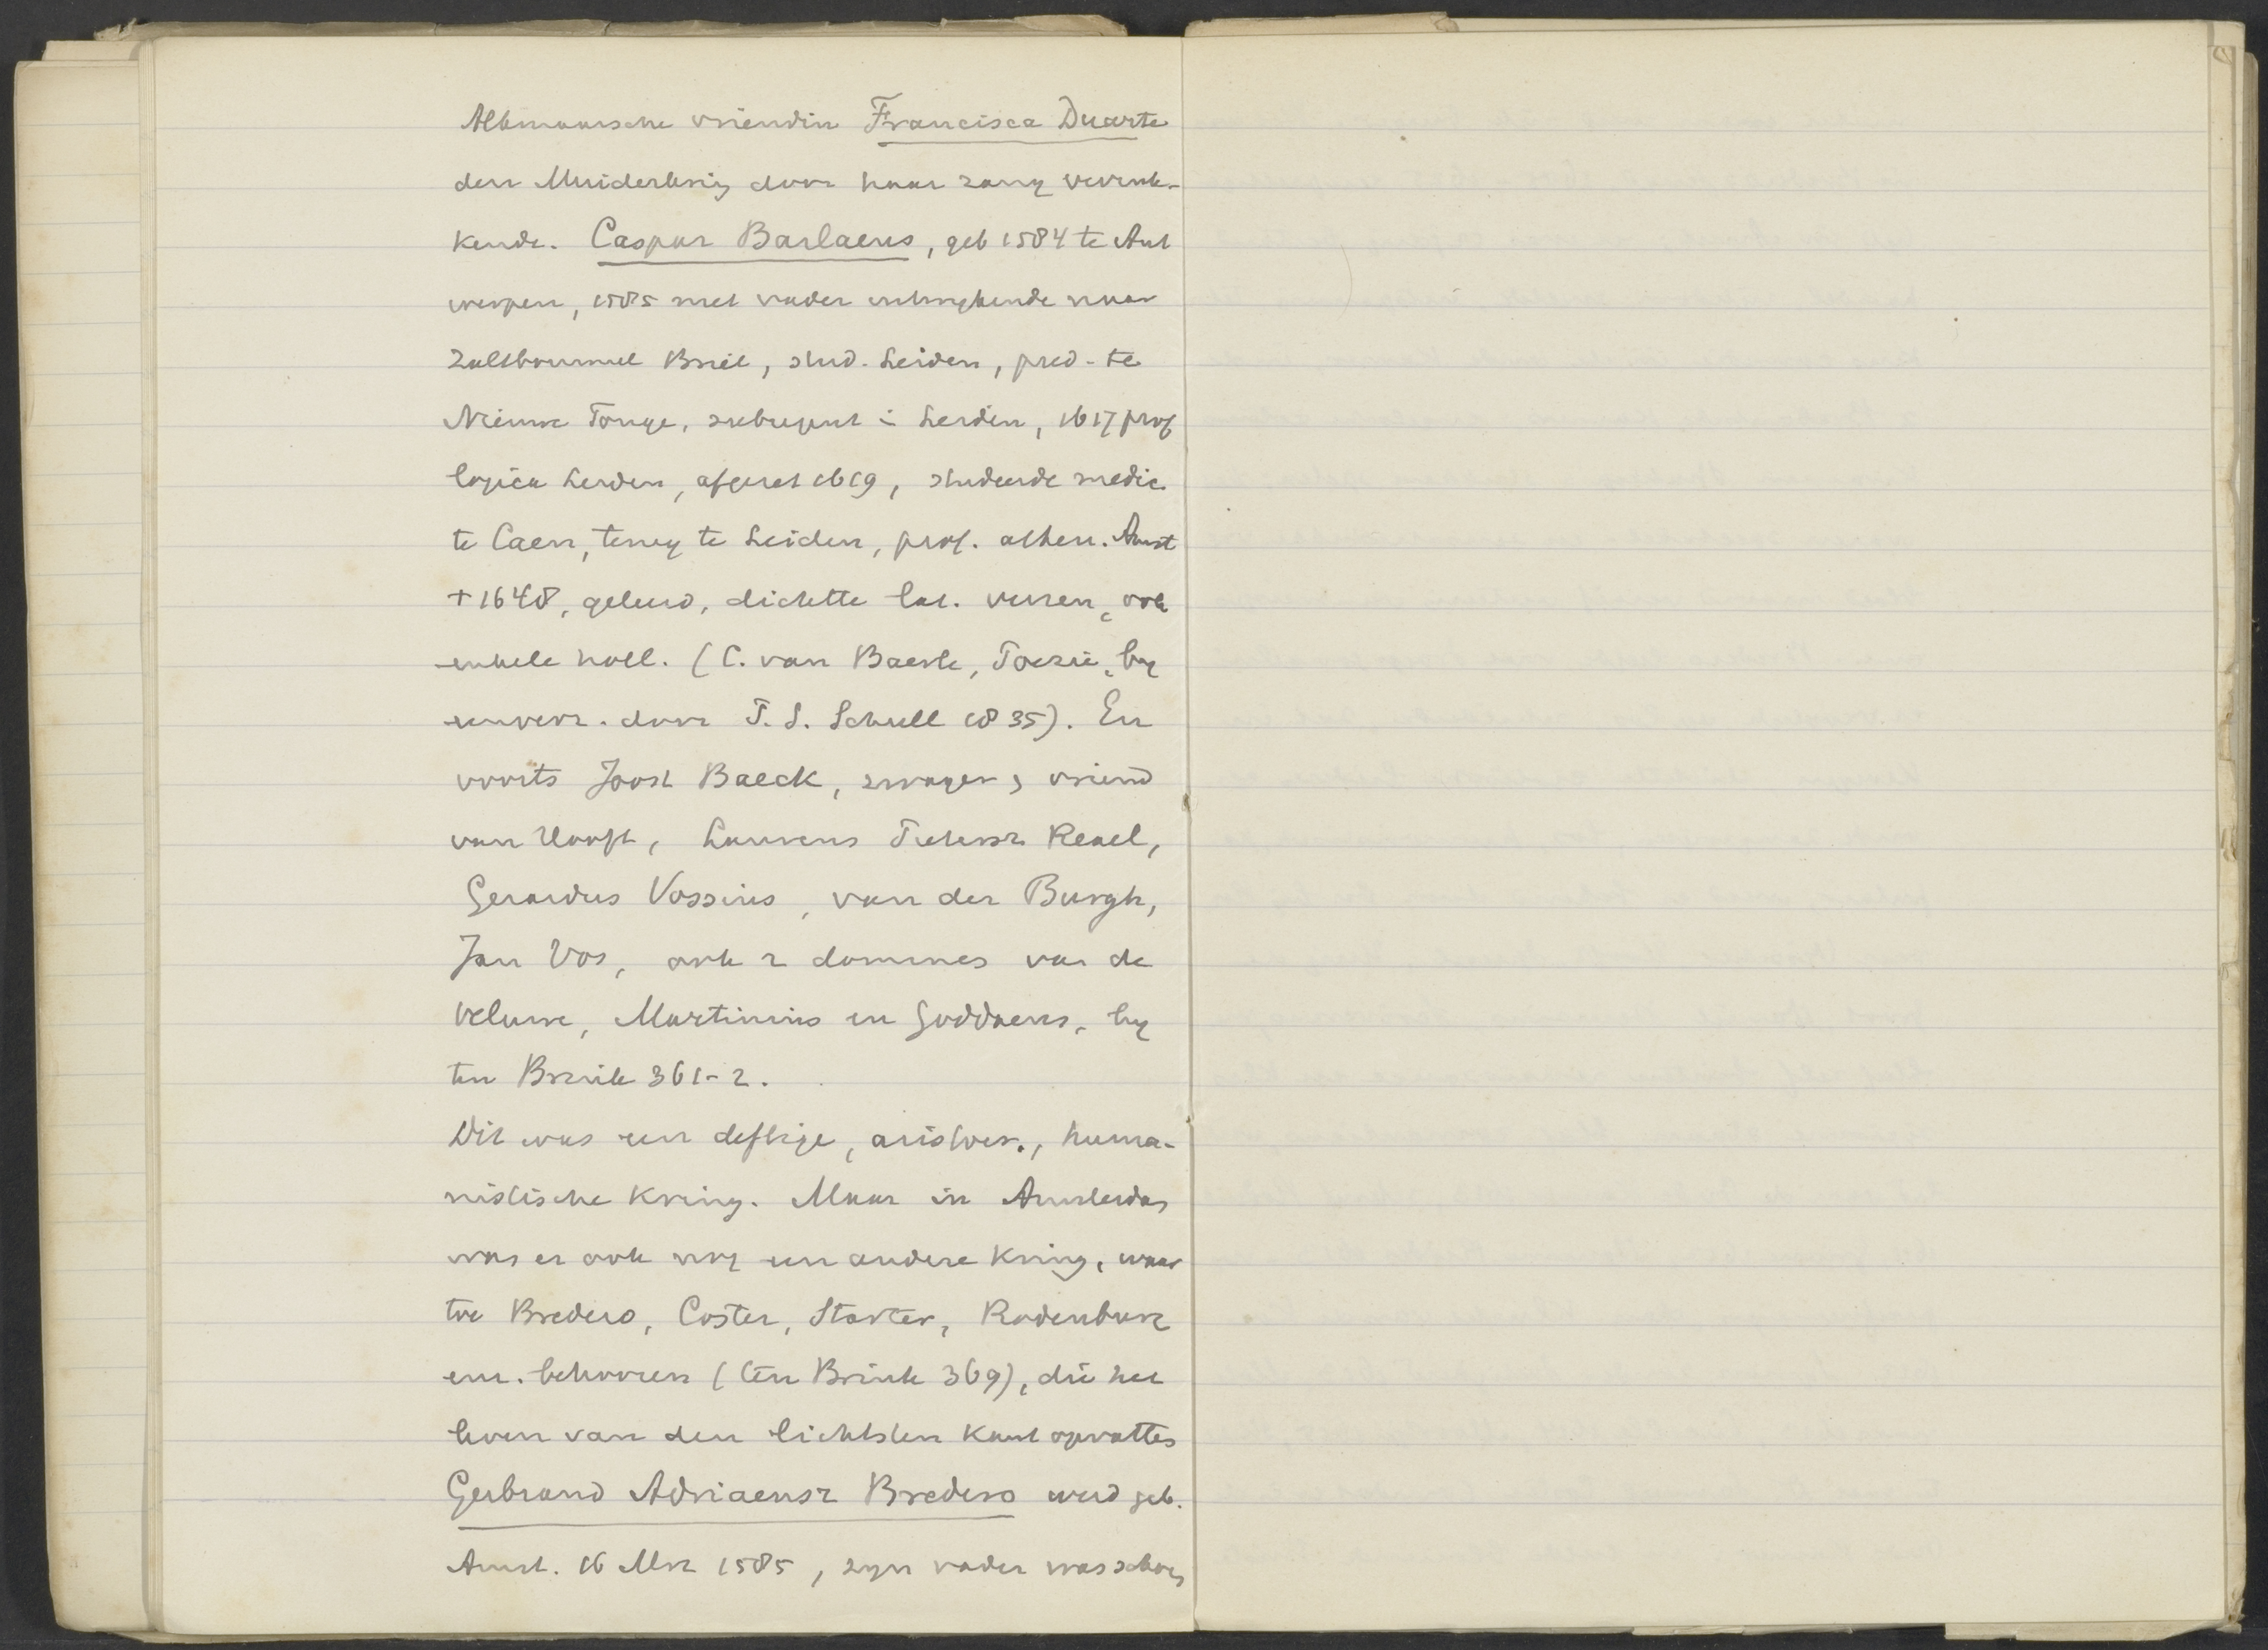 Alkmaarsche vriendin Francisca Duarte
den Muiderkring door haar zang verruk-
kende. Caspar Barlaeus, geb 1584 te Ant
werpen, 1585 met vader uitwykende naar
Zaltbommel Briel, stud. Leiden, pred. te
Nieuwe Tonge, subregent i Leiden, 1617 prof
logica Leiden, afgezet 1619, studeerde medic.
te Caen, terug te Leiden, prof. athen. Amst
+ 1648, geleerd, dichtte lat. verzen, ook
enkele holl. (C. van Baerle, Poezie, by
eenverz. door P. S. Schull 1835). En
voorts Joost Baeck, zwager & vriend
van Hooft, Laurens Reael,
Gerardus Vossius, van der Burgh,
Jan Vos, ook 2 dominees van de
Veluwe, Martinius en Goddaeus, by
ten Brink 361-2.
Dit was een deftige, aristocr., huma-
nistische kring. Maar in Amsterdam
was er ook nog een andere kring, waar
toe Bredero, Coster, Starter, Rodenburg
enz. behooren (ten Brink 369), die het
leven van den lichtsten kant opvatten
Gerbrand Adriaensz Bredero werd geb.
Amst. 16 Mrt 1585, zyn vader was schoen